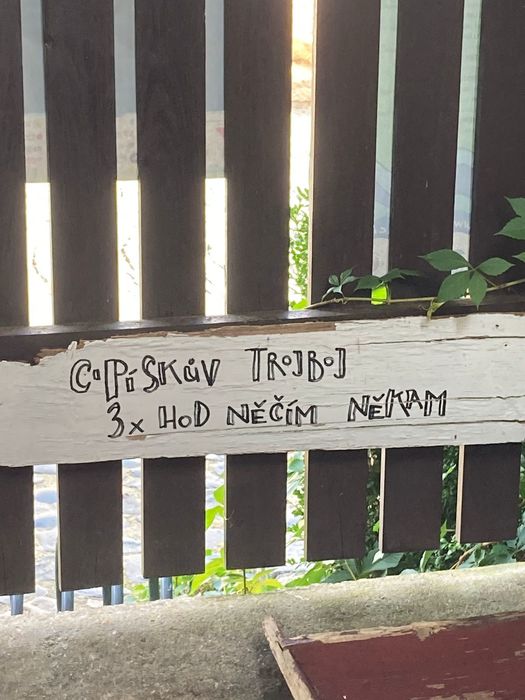 CIPÍSKŮV TROJBOJ
3x HOD NĚČÍM NĚKAM